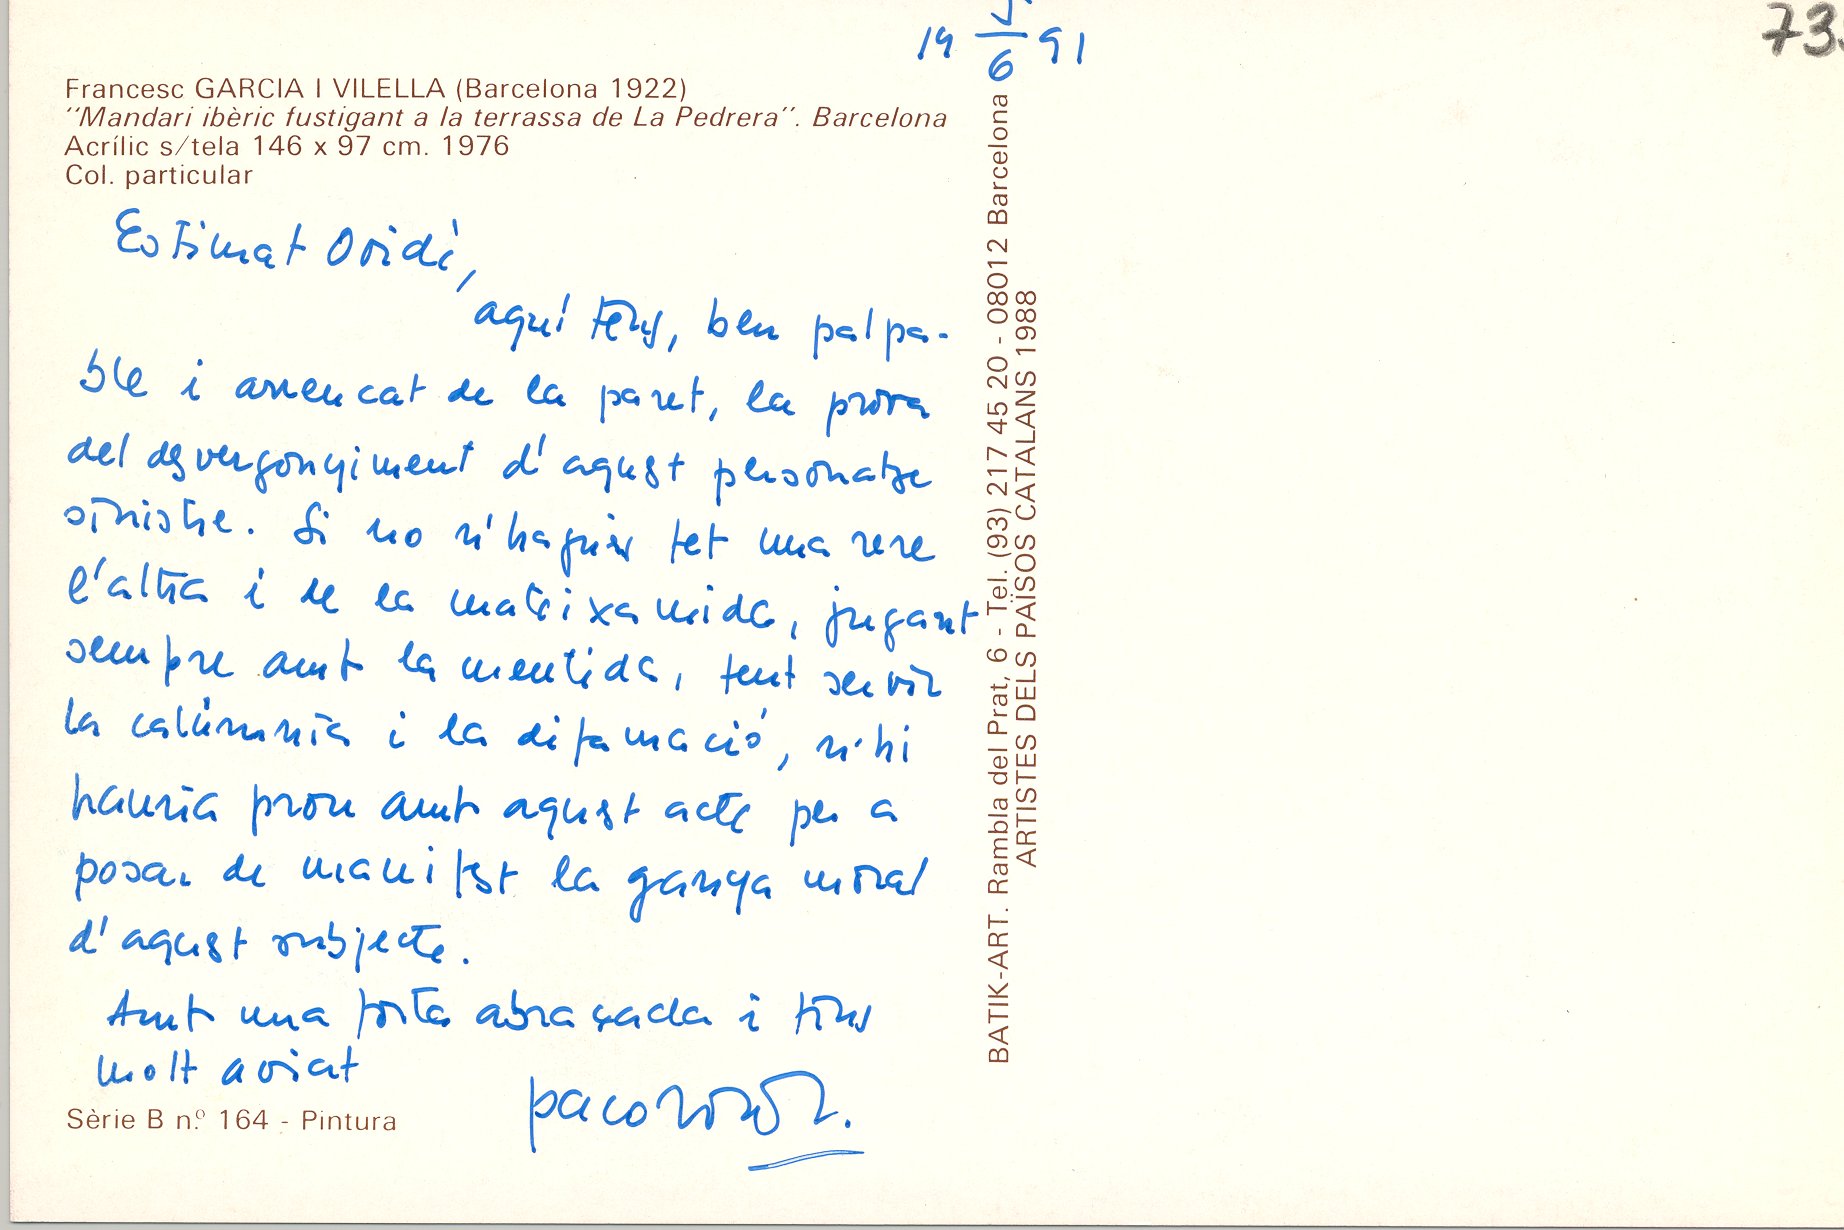 19 5/6 91
73
Francesc GARCIA I VILELLA (Barcelona 1922)
"Mandari ibèric fustigant a la terrassa de La Pedrera". Barcelona
Acrílic s/tela 146 x 97 cm. 1976
Col. particular
Estimat Ovidi,
aquí tens, ben palpa-
ble i arrencat de la paret, la prova
del desvergonyiment d'aquest personatge
sinistre. Si no n'hagués fet una rere
l'altra i de la mateixa mida, jugant
sempre amb la mentida, fent servir
la calúmnia i la difamació, n'hi
hauria prou amb aquest acte per a
posar de manifest la ganya moral
d'aquest subjecte.
Amb una forta abraçada i fins
molt aviat
paco
Sèrie B n.º 164 - Pintura
BATIK-ART. Rambla del Prat, 6 - Tel. (93) 217 45 20 - 08012 Barcelona
ARTISTES DELS PAÏSOS CATALANS 1988